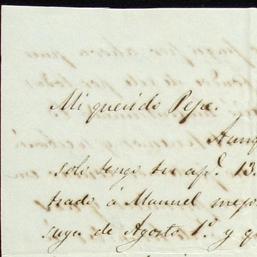 Mi querido Pepe.
Aunq
solo tengo tu ap.ª 13.
trado á Manuel mejo
suya de Agosto 1º y q